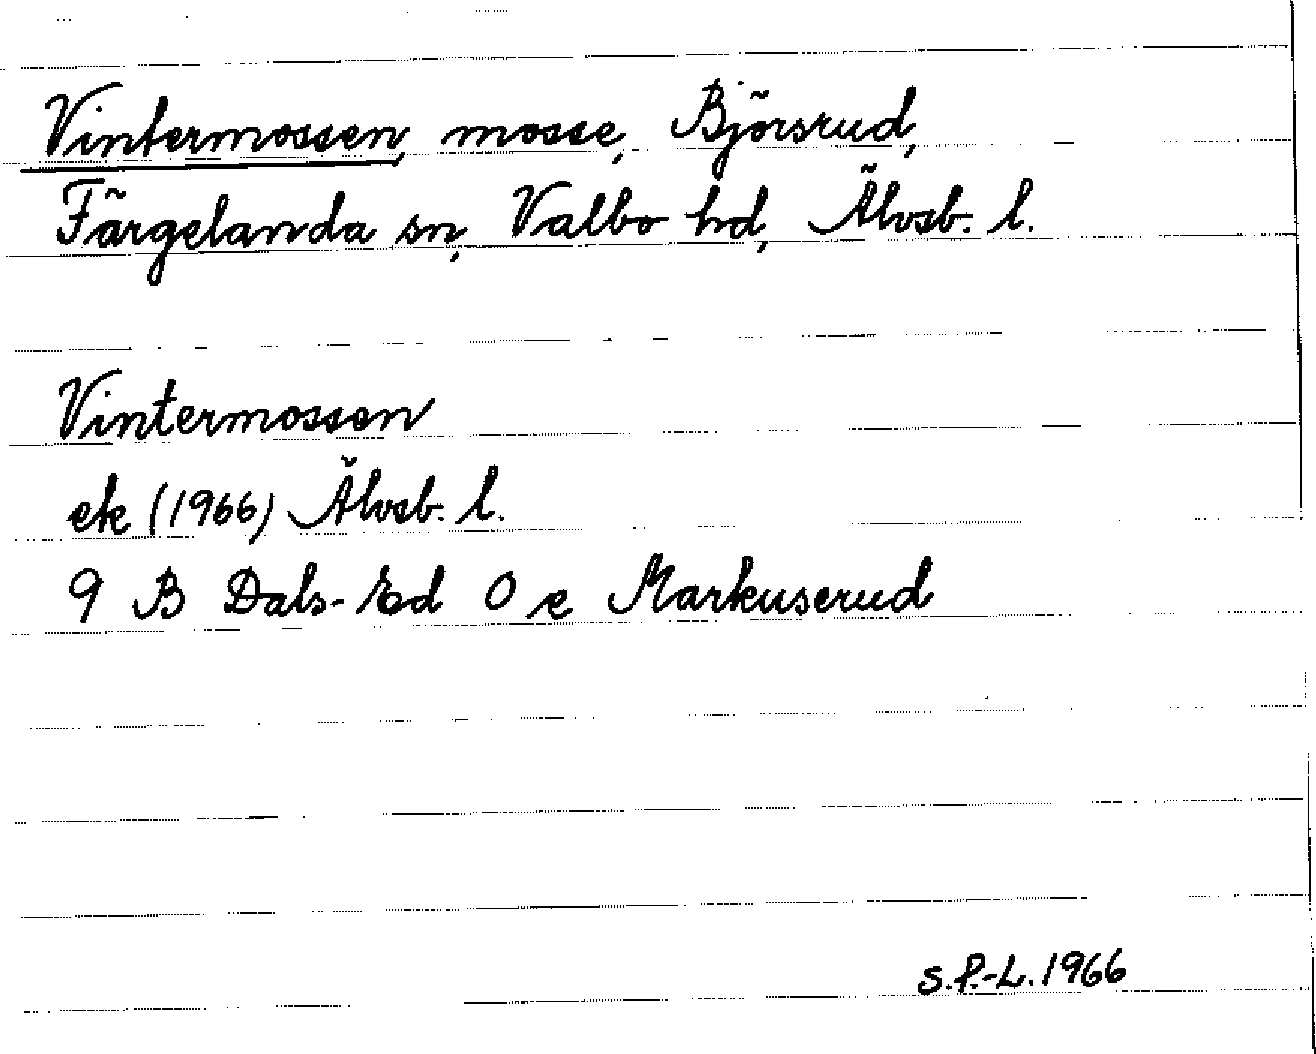 Vintermossen, mosse, Björsrud,
Färgelanda sn, Valbo hd, Älvsb. l.
Vintermossen
ek (1966) Älvsb. l.
9 B Dals-Ed 0 e Markuserud
S.P.-L. 1966